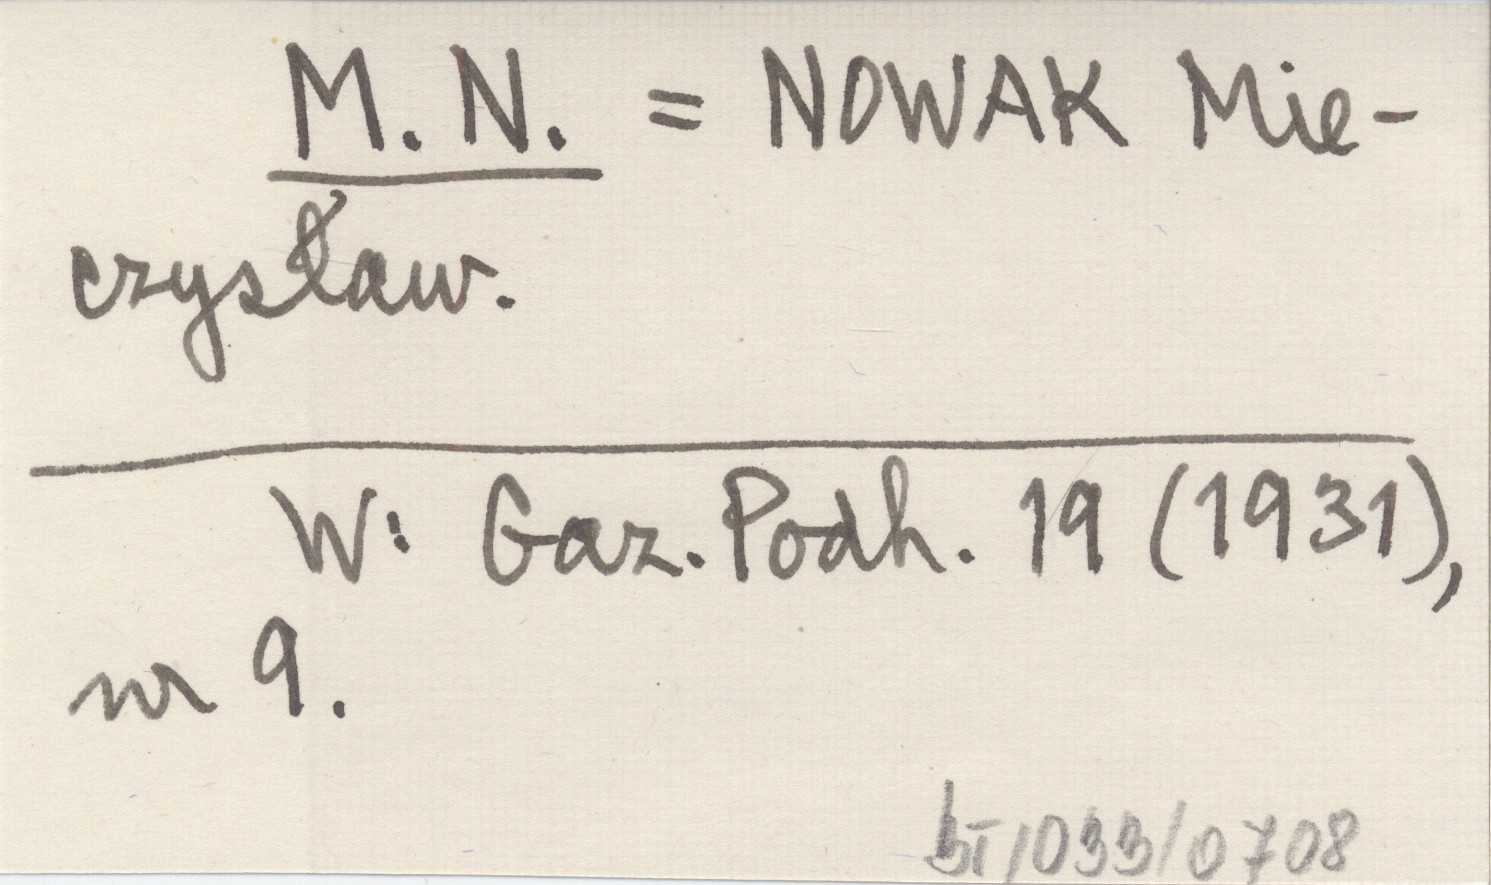 M. N. = NOWAK Mie-
czysław.
W: Gaz. Podh. 19 (1931),
nr 9.
bī/033/0708